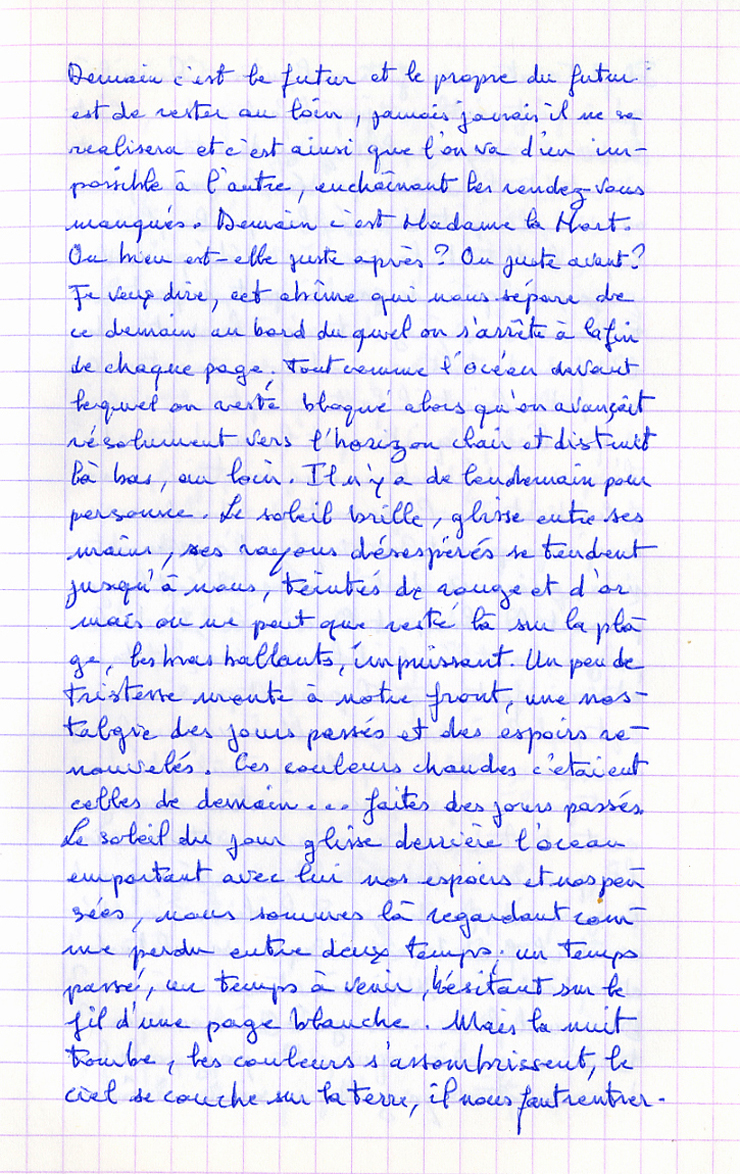 Demain c'est le futur et le propre du futur
est de rester au loin, jamais jamais il ne se
realisera et c'est ainsi que l'on va d'un im-
possible à l'autre, enchaînant les rendez-vous
manqués. Demain c'est Madame la Mort.
Ou bien est-elle juste après ? Ou juste avant ?
Je veux dire, cet abîme qui nous sépare de
ce demain au bord duquel on s'arrête à la fin
de chaque page. Tout comme l'océan devant
lequel on resté bloqué alors qu'on avançait
résolument vers l'horizon clair et distinct
là bas, au loin. Il n'y a de lendemain pour
personne. Le soleil brille, glisse entre ses
mains, ses rayons désespérés se tendent
jusqu'à nous, teintés de rouge et d'or
mais on ne peut que resté là sur la pla
ge, les bras ballants, impuissant. Un peu de
tristesse monte à notre front, une nos-
talgie des jours passés et des espoirs re-
nouvelés. Ces couleurs chaudes c'etaient
celles de demain... faites des jours passés.
Le soleil du jour glisse derrière l'ocean
emportant avec lui nos espoirs et nos pen
sées, nous sommes là regardant com-
me perdu entre deux temps; un temps
passé, un temps à venir, hésitant sur le
fil d'une page blanche. Mais la nuit
tombe, les couleurs s'assombrissent, le
ciel se couche sur la terre, il nous faut rentrer.